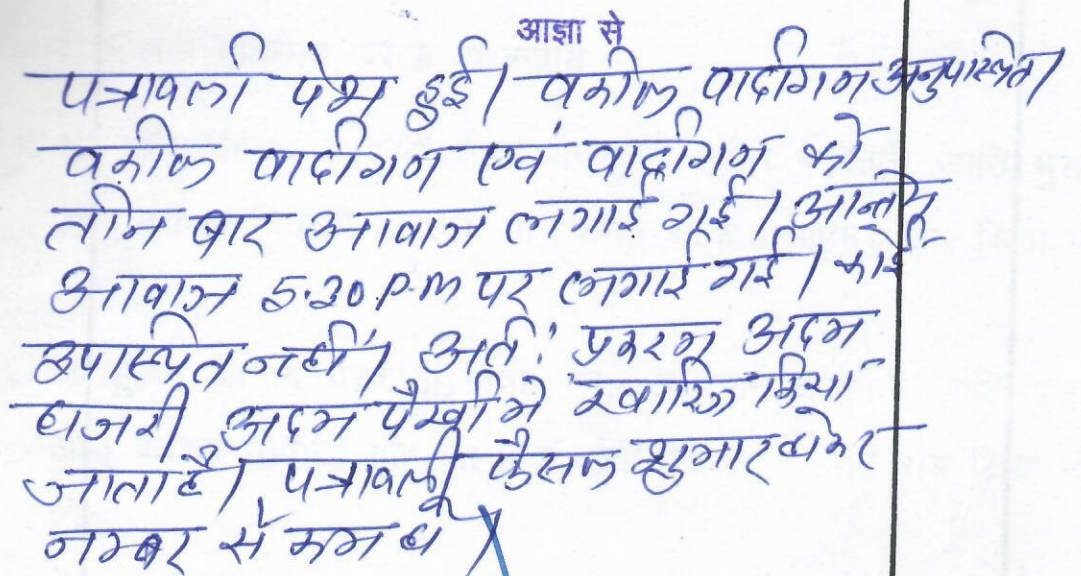 आज्ञा से
पत्रावली पेश हुई। वकील वादीगण अनुपस्थित।
वकील वादीगण एवं वादीगण को
तीन बार आवाज लगाई गई। अन्तिम
आवाज 5.30 P.m पर लगाई गई। कोई
उपस्थित नहीं। अतः प्रकरण अदम
हाजरी अदम पैरवी मे खारिज किया
जाता है। पत्रावली फैसल शुमार होकर
नम्बर से कम हो।